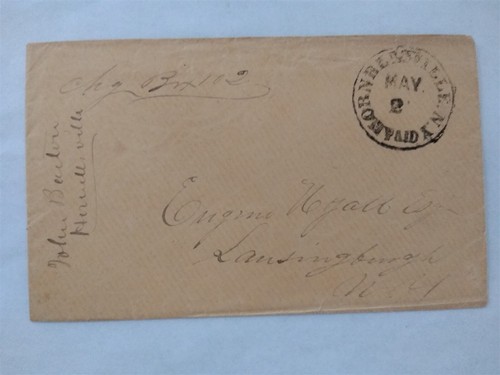 Chg Box 102
HORNELLSVILLE. N.Y
MAY
2
PAID
John Barton
Hornellsville
Eugene Hyatt Esq
Lansingburgh
N.Y